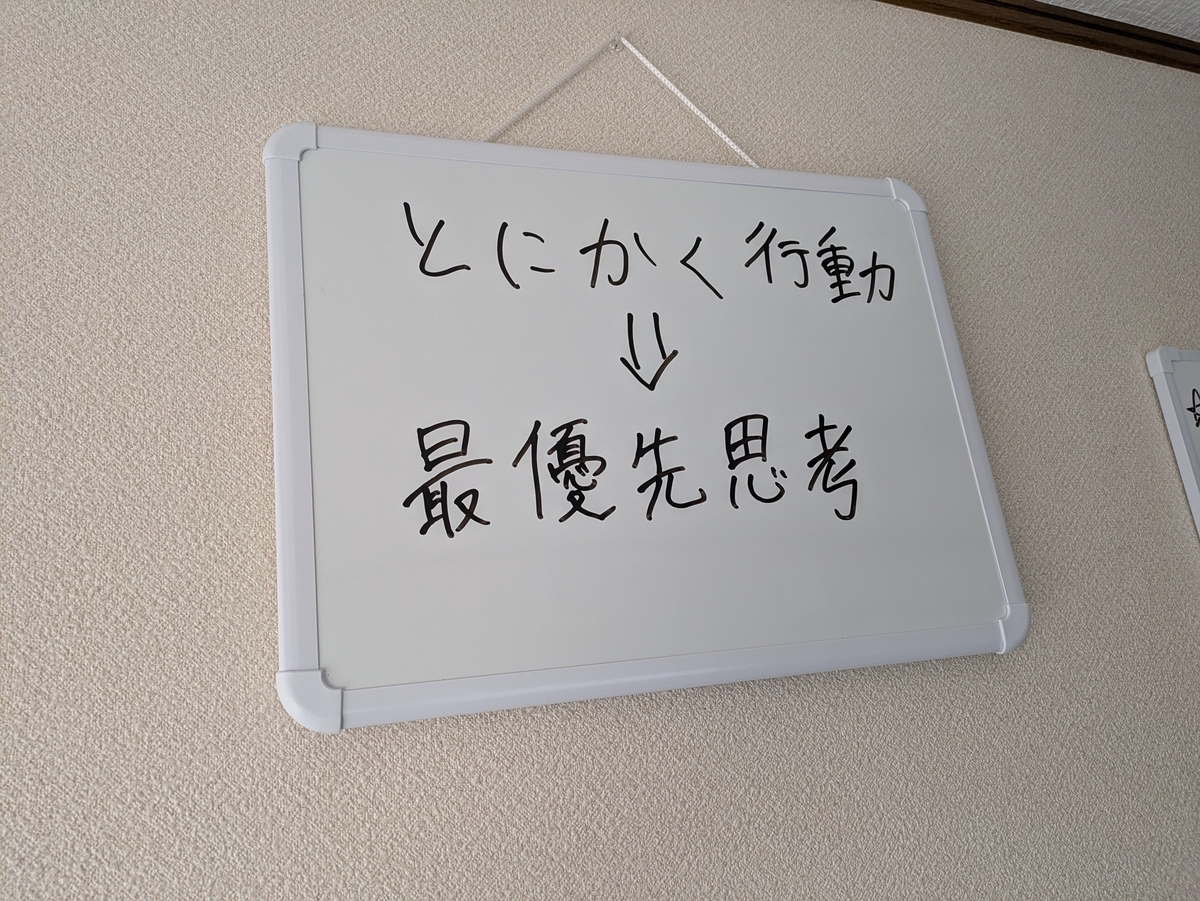 とにかく行動
⇓
最優先思考